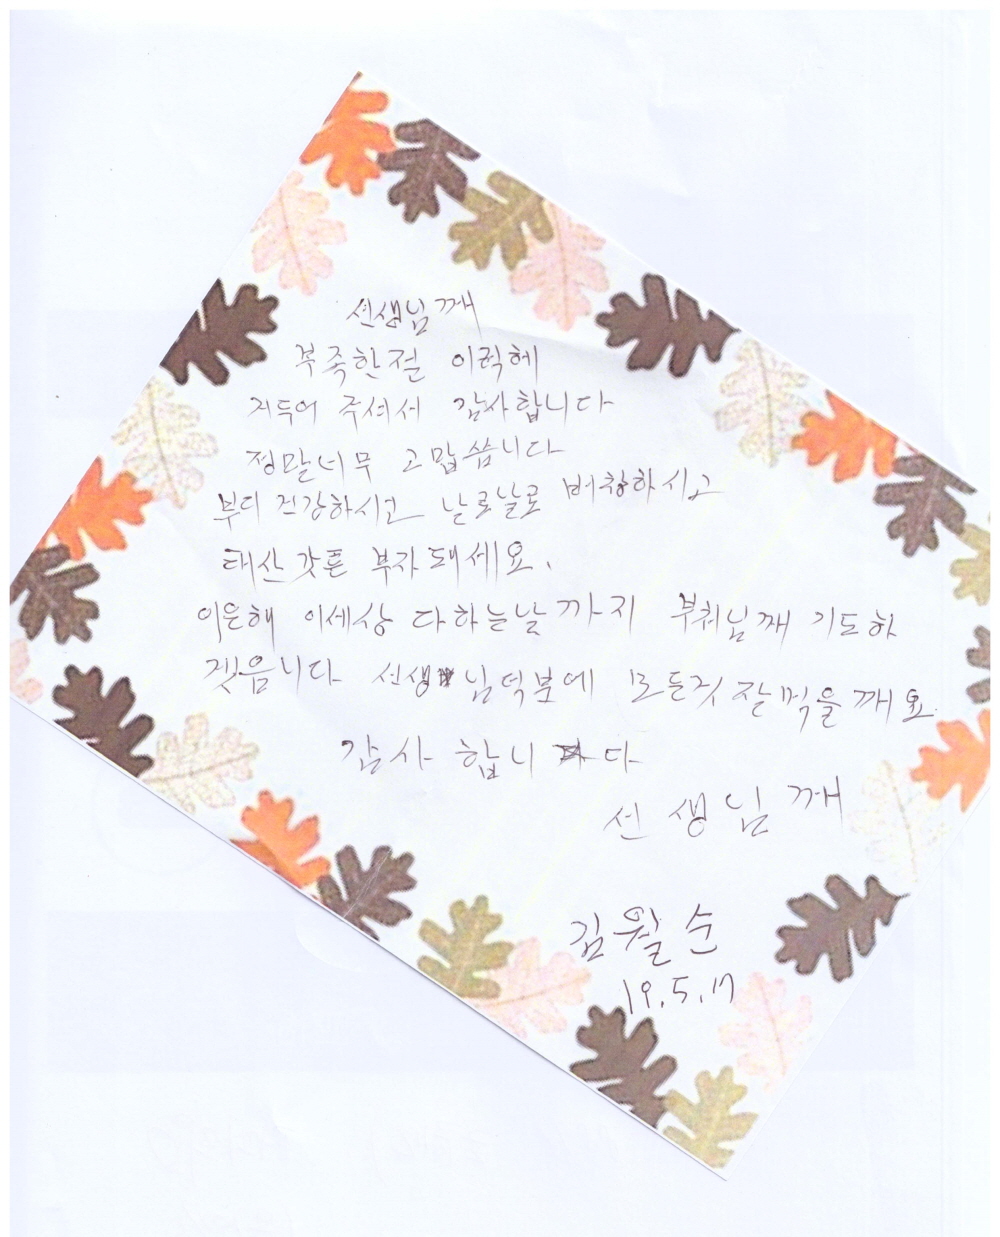 선생님 께
부족한절 이럭헤
저두어 주셔서 감사합니다
정말너무 고맙씁니다
부디 건강하시고 날로날로 버창하시고
태산 갓튼 부자 돼세요.
이은해 이세상 다하는날 까지 부쳐님께 기도하
겟읍니다 선생님덕분에 모든것 잘먹을 깨요
감사 합니다
선생님 께
김월순
19.5.17